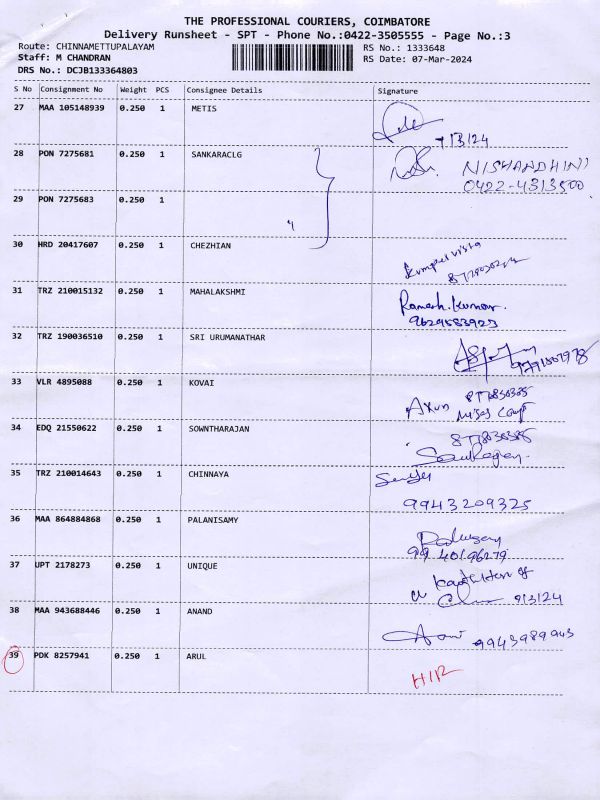 THE PROFESSIONAL COURIERS, COIMBATORE
Delivery Runsheet - SPT - Phone No.:0422-3505555 - Page No.:3
Route: CHINNAMETTUPALAYAM RS No.: 1333648
Staff: M CHANDRAN RS Date: 07-Mar-2024
DRS No.: DCJB133364803
S No Consignment No Weight PCS Consignee Details Signature
27 MAA 105148939 0.250 1 METIS
7/3/24
28 PON 7275681 0.250 1 SANKARACLG NISHANDHINI
0422-4313500
29 PON 7275683 0.250 1
30 HRD 20417607 0.250 1 CHEZHIAN
31 TRZ 210015132 0.250 1 MAHALAKSHMI Ramesh.kumar.
9629583923
32 TRZ 190036510 0.250 1 SRI URUMANATHAR
33 VLR 4895088 0.250 1 KOVAI
Arun
34 EDQ 21550622 0.250 1 SOWNTHARAJAN
35 TRZ 210014643 0.250 1 CHINNAYA
9943209325
36 MAA 864884868 0.250 1 PALANISAMY
9940196279
37 UPT 2178273 0.250 1 UNIQUE
38 MAA 943688446 0.250 1 ANAND
9943989943
39 PDK 8257941 0.250 1 ARUL